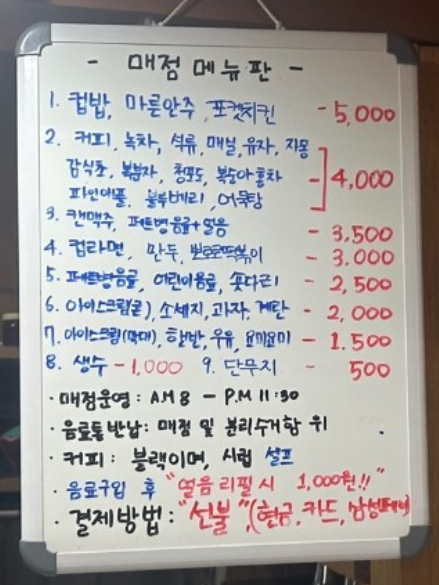 - 매점 메뉴판 -
1. 컵밥, 마른안주, 포켓치킨 - 5,000
2. 커피, 녹차, 석류, 매실, 유자, 자몽
감식초, 복분자, 청포도, 복숭아홍차 - 4,000
파인애플, 블루베리, 어묵탕
3. 캔맥주, 페트병음료+얼음 - 3,500
4. 컵라면, 만두, 뽀로로떡볶이 - 3.000
5. 페트병음료, 어린이음료, 숏다리 - 2,500
6. 아이스크림(콘), 소세지, 과자, 계란 - 2,000
7. 아이스크림(막대), 햇반, 우유, 요미요미 - 1.500
8. 생수 - 1,000 9. 단무지 - 500
· 매점운영 : A.M 8 - P.M 11:30
· 음료통반납 : 매점 및 분리수거함 위
· 커피 : 블랙이며, 시럽 셀프
· 음료구입 후 "얼음 리필 시 1,000원!!"
· 결제방법 : "선불", (현금, 카드, 삼성페이)